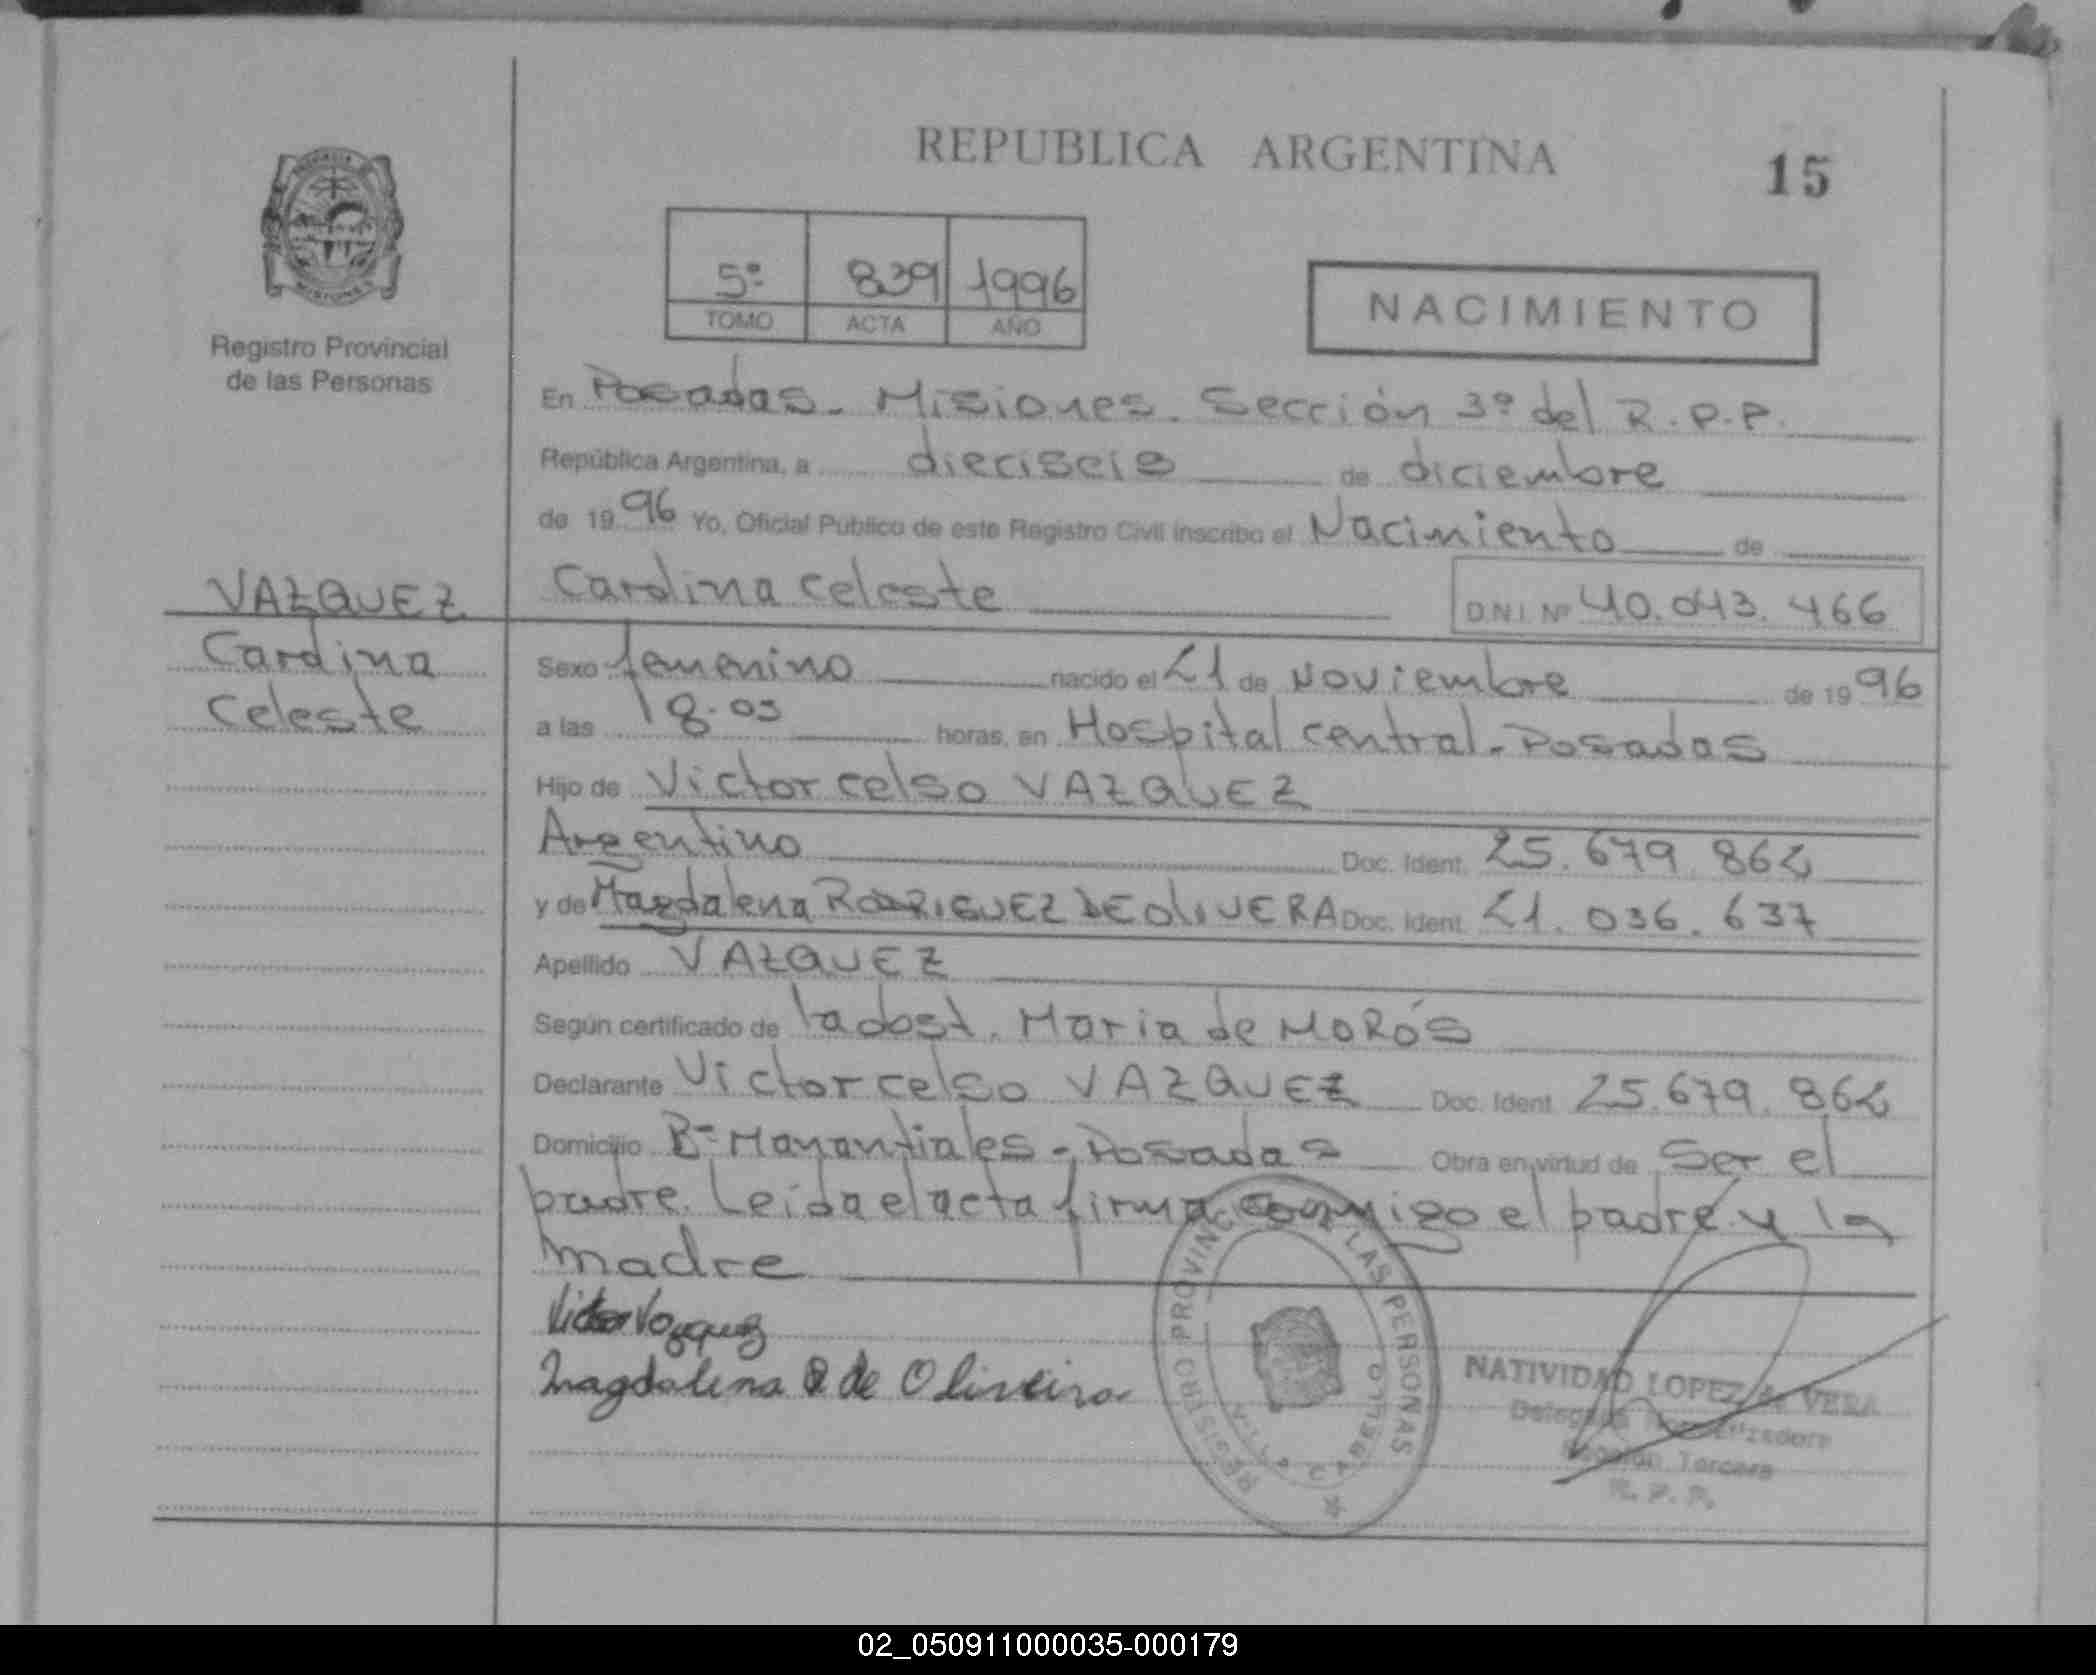 REPUBLICA ARGENTINA
15
5º 839 1996
TOMO ACTA AÑO
NACIMIENTO
Registro Provincial
de las Personas
En Posadas - Misiones. Sección 3º del R.P.P.
República Argentina, a dieciseis de diciembre
de 1996 Yo, Oficial Público de este Registro Civil inscribo el Nacimiento de
VAZQUEZ
Cardina Celeste
Cardina celeste D.N.I. Nº 40.043.466
Sexo femenino nacido el 21 de Noviembre de 1996
a las 18.05 horas, en Hospital central - Posadas
Hijo de Victor celso VAZQUEZ
Argentino Doc. Ident. 25.679.862
y de Magdalena RODRIGUEZ DE OLIVERA Doc. Ident. 21.036.637
Apellido VAZQUEZ
Según certificado de la obst. Maria de MORÓS
Declarante Victor celso VAZQUEZ Doc. Ident. 25.679.862
Domicilio Bº Manantiales - Posadas Obra en virtud de ser el
padre. Leida el acta firma conmigo el padre y la
madre
Victor Vazquez
Magdalena R de Oliveira
REGISTRO PROVINCIAL DE LAS PERSONAS
CABELLO
NATIVIDAD LOPEZ de VERA
Delegada
Sección Tercera
R. P. P.
02_050911000035-000179